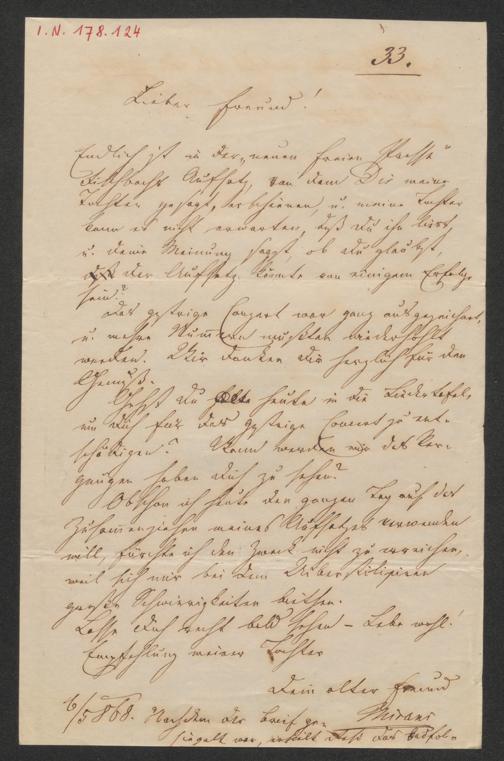 I.N. 178.124
33.
Lieber Freund!
Endlich ist in der „neuen freien Presse"
Fischbachs Aufsatz, von dem Dir meine
Tochter gesagt, erschienen, u. meine Tochter
kann es nicht erwarten, daß Du ihn liest,
u. deine Meinung sagst, ob du glaubst
daß der Aufsatz könnte von einigem Erfolge
sein?
Das gestrige Concert war ganz ausgezeichnet,
u. mehre Nummern mußten wiederholt
werden. Wir danken Dir herzlich für den
Genuß.
Gehst Du heute in die Liedertafel,
um Dich für das gestrige Concert zu ent-
schädigen? Wann werden wir das Ver-
gnügen haben Dich zu sehen?
Obschon ich heute den ganzen Tag auf das
Zusammenziehen meines Aufsatzes verwenden
will, fürchte ich den Zweck nicht zu erreichen,
weil sich mir bei dem
große Schwierigkeiten biethen.
Lasse Dich recht bald sehen – Lebe wohl!
Empfehlung meiner Tochter
Dein alter Freund
6/5 868. Nachdem der Brief ge-
siegelt war, erhielt